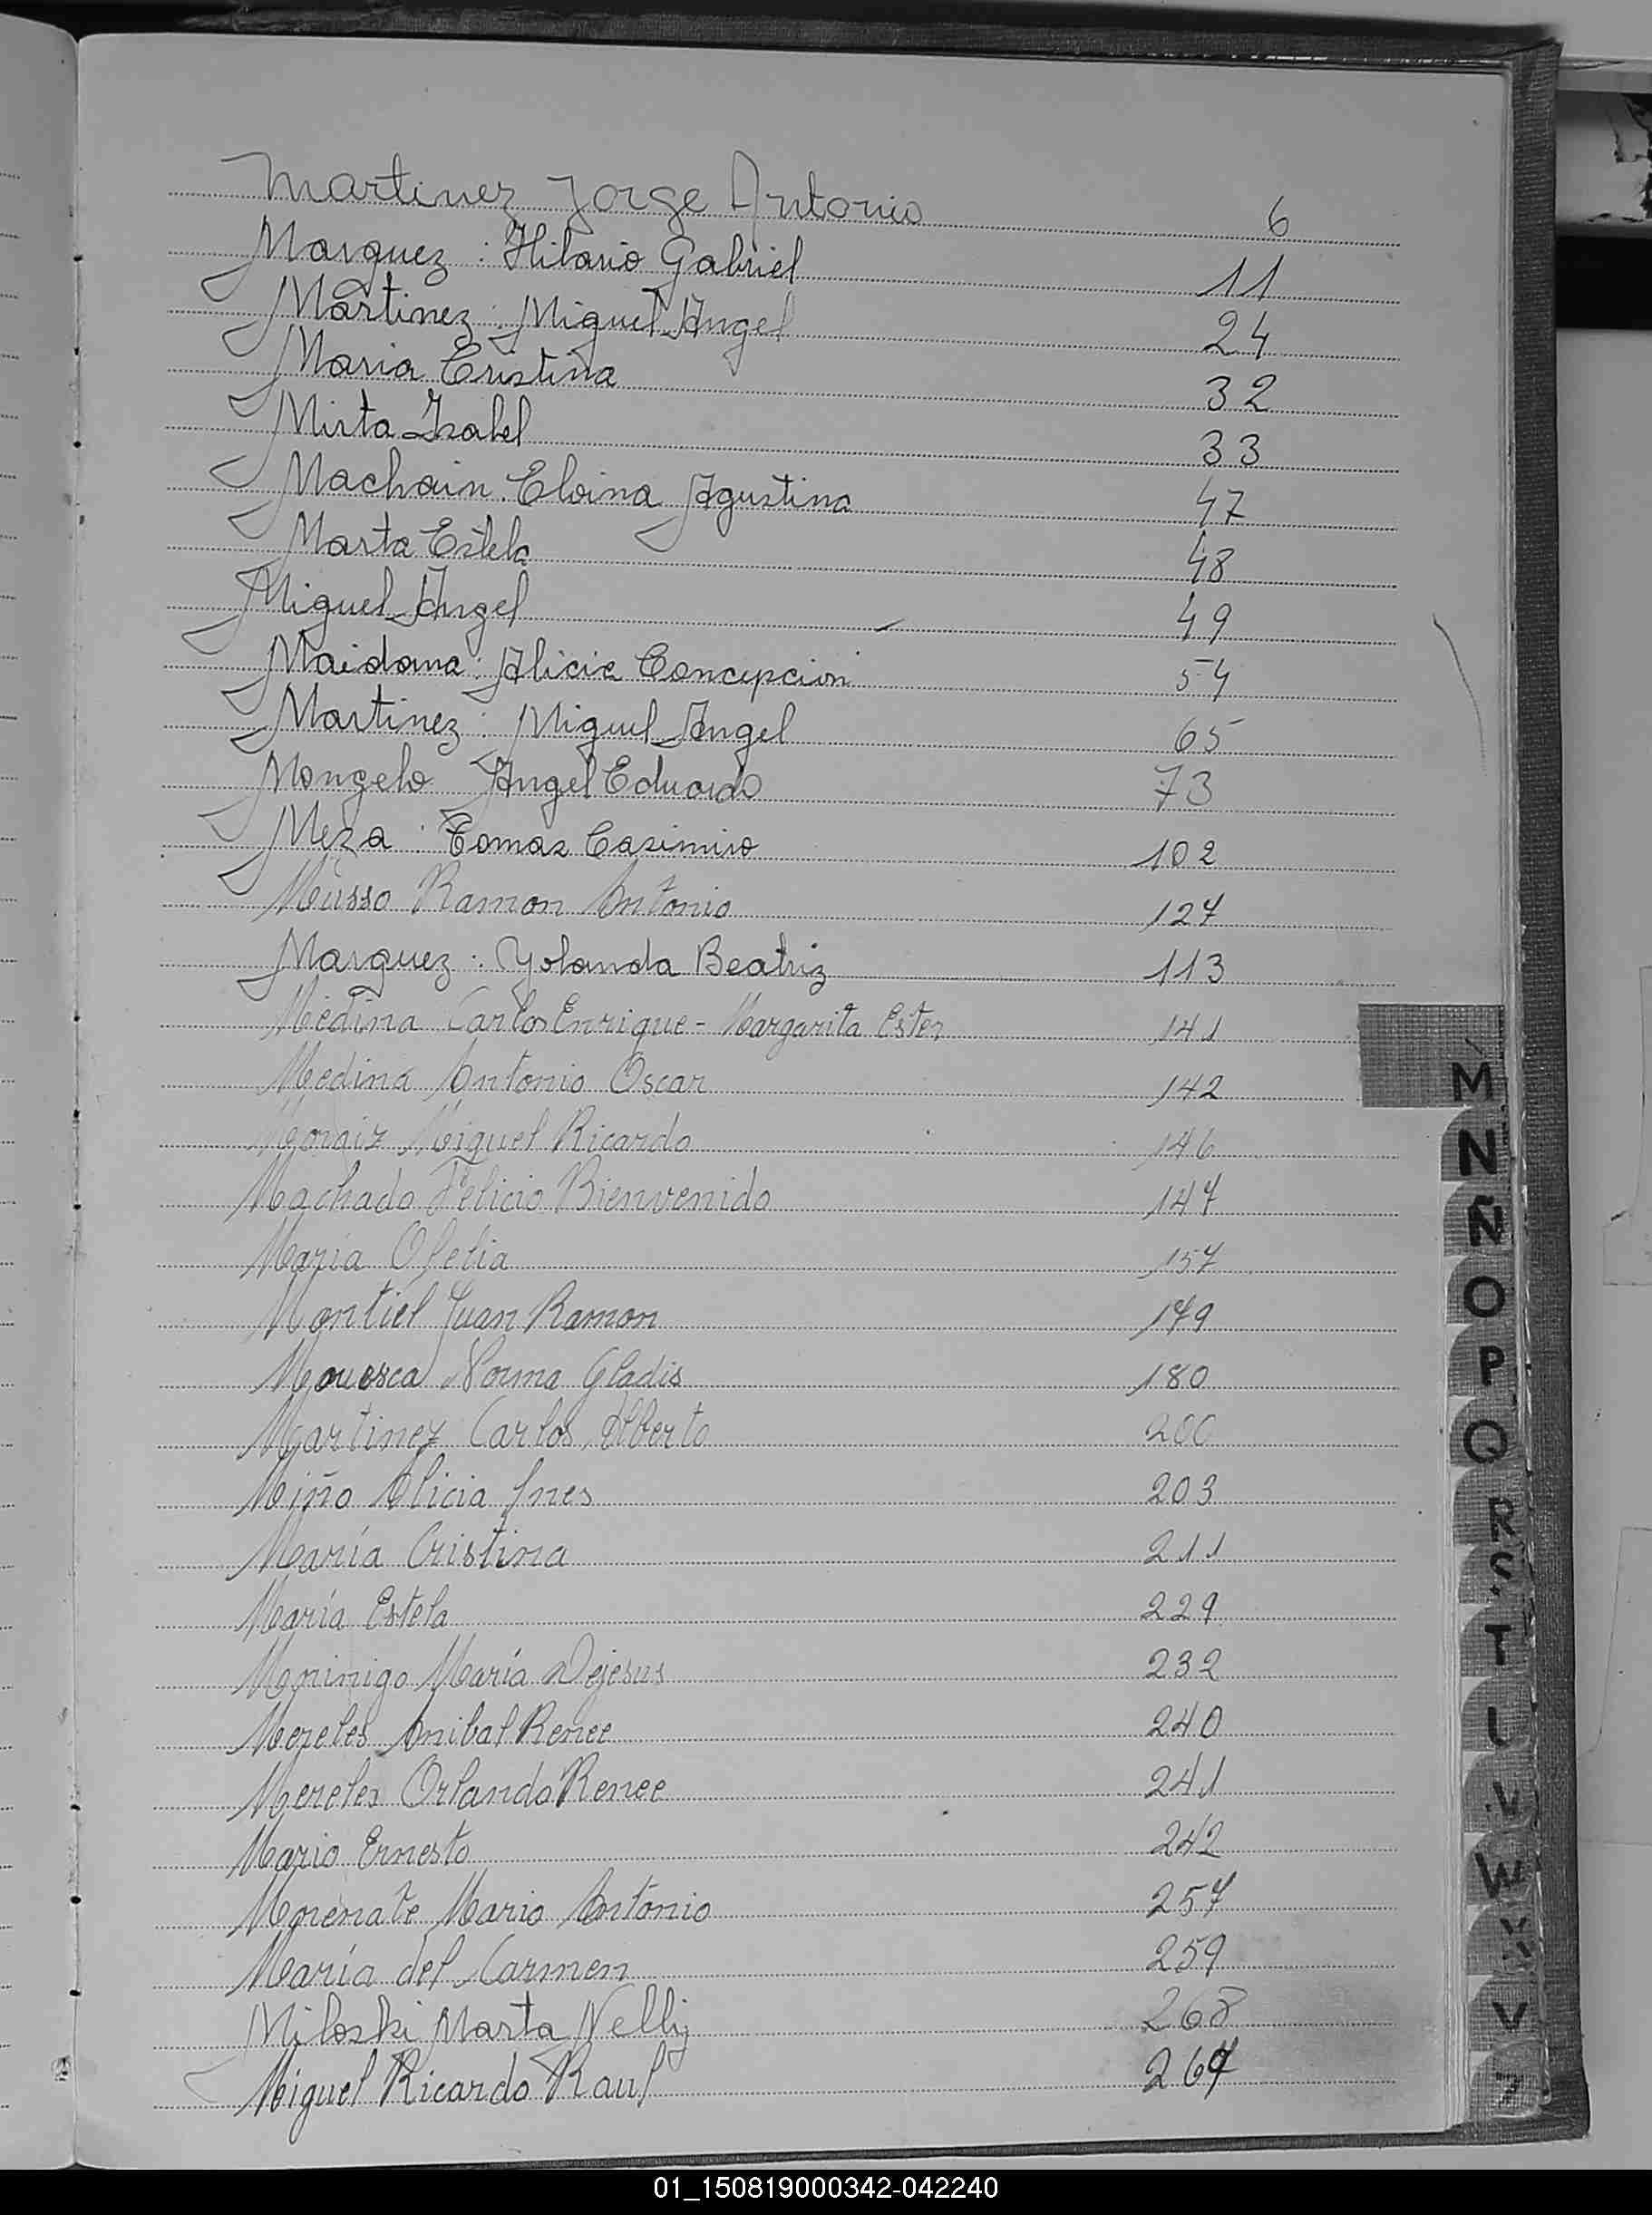 Martinez Jorge Antonio 6
Marquez : Hilario Gabriel 11
Martinez : Miguel Angel 24
Maria Cristina 32
Mirta Isabel 33
Machain. Eloina Agustina 47
Marta Estela 48
Miguel Angel 49
Maidana : Alicia Concepcion 54
Martinez : Miguel Angel 65
Mongelo Angel Eduardo 73
Meza : Tomas Casimiro 102
Musso Ramon Antonio 127
Marquez : Yolanda Beatriz 113
Medina Carlos Enrique - Margarita Ester 141
Medina Antonio Oscar 142
Miguel Ricardo 146
Machado Felicio Bienvenido 147
María Ofelia 157
Montiel Juan Ramon 179
Norma Gladis 180
Martinez Carlos Alberto 200
Miño Alicia Ines 203
María Cristina 211
María Estela 229
Meninigo María Dejesus 232
Mereles Anibal Renee 240
Mereles Orlando Renee 241
Mario Ernesto 242
Mario Antonio 257
María del Carmen 259
Miloski Marta Nelly 268
Miguel Ricardo Raul
M
N
Ñ
O
P
Q
R
S
T
V
W
X
01_150819000342-042240